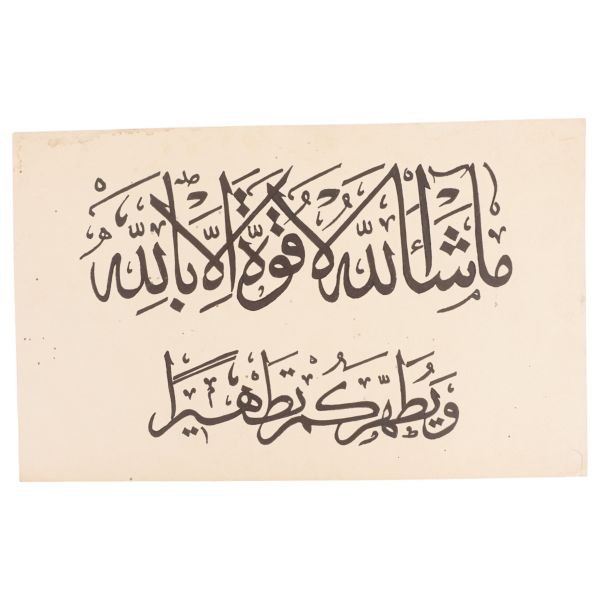 ما شاء الله لا قوة الا بالله
ويطهركم تطهيرا